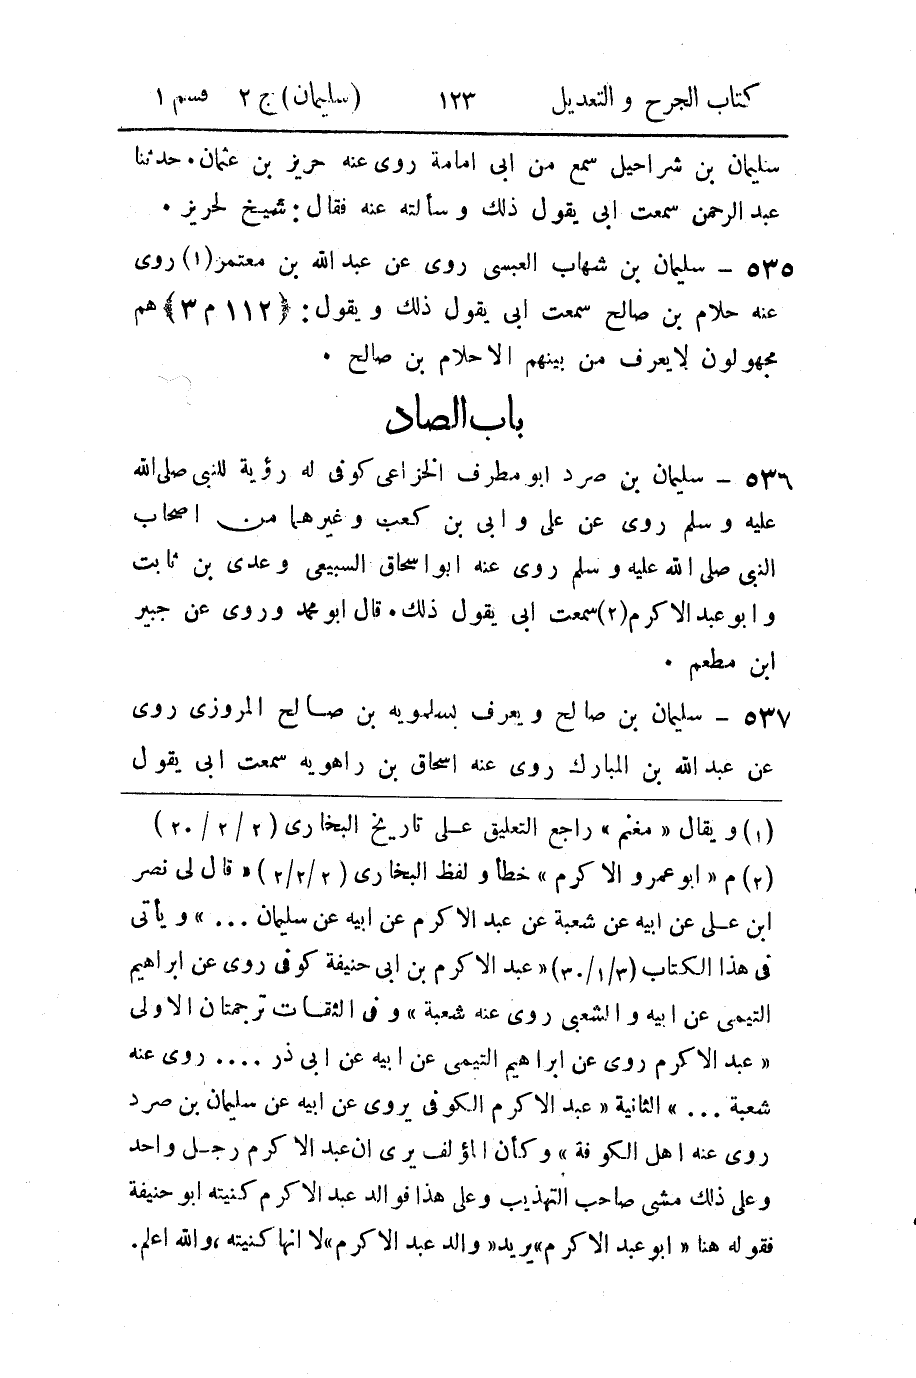 كتاب الجرح و التعديل ١٢٣ (سليمان) ج ٢ قسم ١
سليمان بن شراحيل سمع من ابى امامة روى عنه حريز بن عثمان. حدثنا
عبد الرحمن سمعت ابى يقول ذلك و سألته عنه فقال: شيخ لحريز .
٥٣٥ – سليمان بن شهاب العبسى روى عن عبد الله بن معتمر(١) روى
عنه حلام بن صالح سمعت ابى يقول ذلك و يقول: ﴿١١٢ م ٣﴾ هم
مجهولون لايعرف من بينهم الا حلام بن صالح .
باب الصاد
٥٣٦ – سليمان بن صرد ابو مطرف الخزاعى كوفى له رؤية للنبى صلى الله
عليه و سلم روى عن على و ابى بن كعب و غيرهما من اصحاب
النبى صلى الله عليه و سلم روى عنه ابو اسحاق السبيعى و عدى بن ثابت
و ابو عبد الاكرم(٢) سمعت ابى يقول ذلك. قال ابو محمد وروى عن جبير
ابن مطعم .
٥٣٧ – سليمان بن صالح و يعرف بسلمويه بن صالح المروزى روى
عن عبد الله بن المبارك روى عنه اسحاق بن راهويه سمعت ابى يقول
(١) و يقال « مغنم » راجع التعليق على تاريخ البخارى (٢ / ٢ / ٢٠)
(٢) م « ابو عمرو الاكرم » خطأ و لفظ البخارى (٢/٢/٢) « قال لى نصر
ابن على عن ابيه عن شعبة عن عبد الاكرم عن ابيه عن سليمان ... » و يأتى
فى هذا الكتاب (٣/١/٣٠) « عبد الاكرم بن ابى حنيفة كوفى روى عن ابراهيم
التيمى عن ابيه و الشعبى روى عنه شعبة » و فى الثقات ترجمتان الاولى
« عبد الاكرم روى عن ابراهيم التيمى عن ابيه عن ابى ذر .... روى عنه
شعبة ... » الثانية « عبد الاكرم الكوفى يروى عن ابيه عن سليمان بن صرد
روى عنه اهل الكوفة » و كأن المؤلف يرى ان عبد الاكرم رجل واحد
و على ذلك مشى صاحب التهذيب و على هذا فوالد عبد الاكرم كنيته ابو حنيفة
فقوله هنا « ابو عبد الاكرم» يريد« والد عبد الاكرم»لا انها كنيته ،والله اعلم.